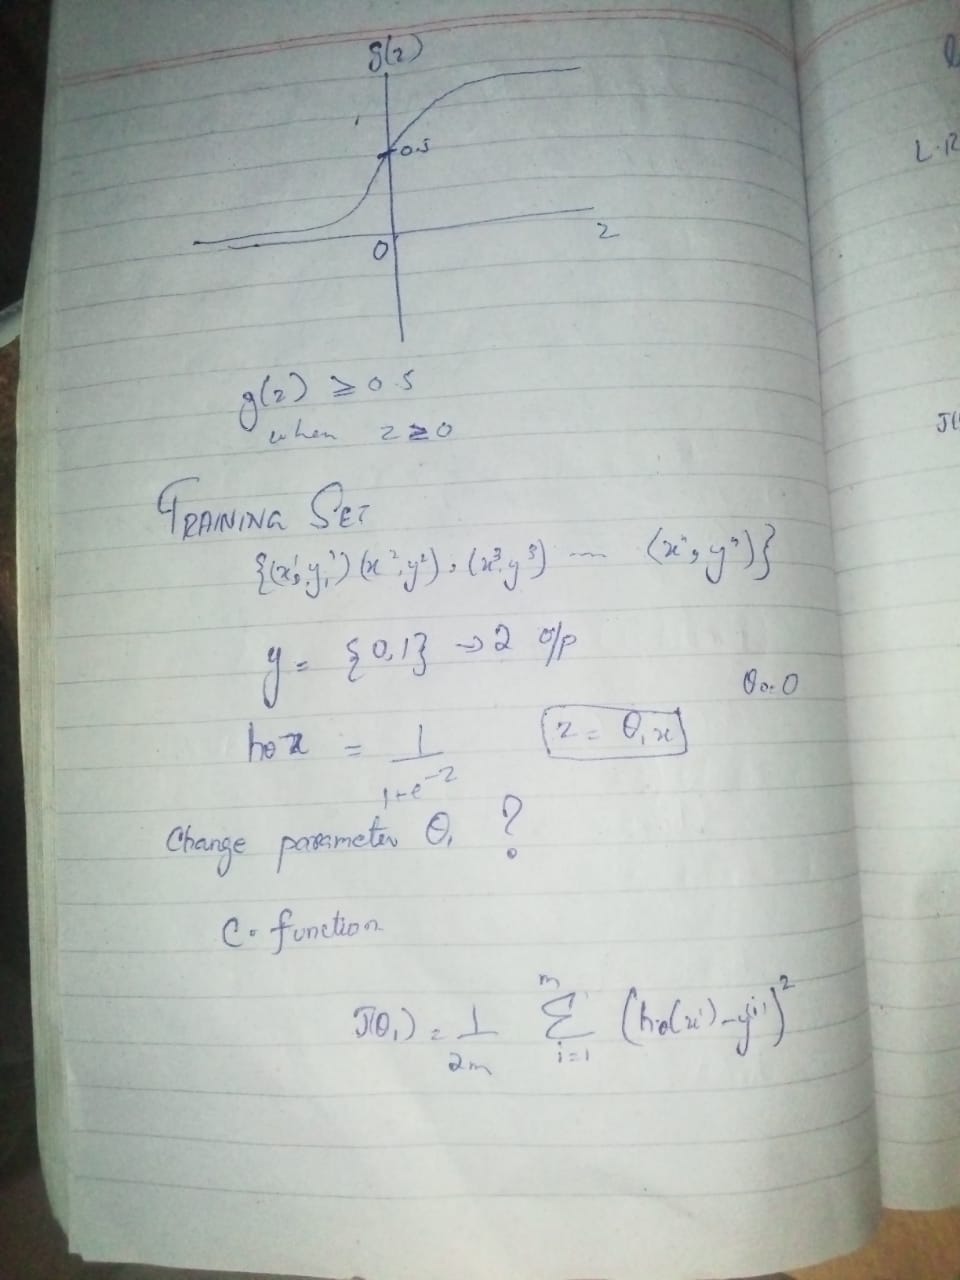 g(z)
0.5
0
z
g(z) ≥ 0.5
when z ≥ 0
TRAINING SET
{(x¹, y¹) (x², y²), (x³, y³) — (xⁿ, yⁿ)}
y = {0,1} → 2 o/p
θ₀ = 0
hθx = 1/(1+e^-z) z = θ₁x
Change parameter θ₁ ?
C. function
J(θ₁) = 1/2m Σ i=1 m (hθ(xⁱ) - y⁽ⁱ⁾)²
L.R
J(